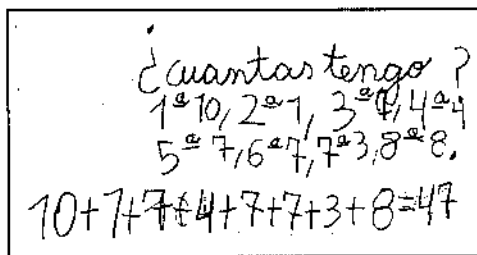 ¿cuantas tengo?
1ª10, 2ª1, 3ª7, 4ª4
5ª7, 6ª7, 7ª3, 8ª8.
10+1+7+4+7+7+3+8=47